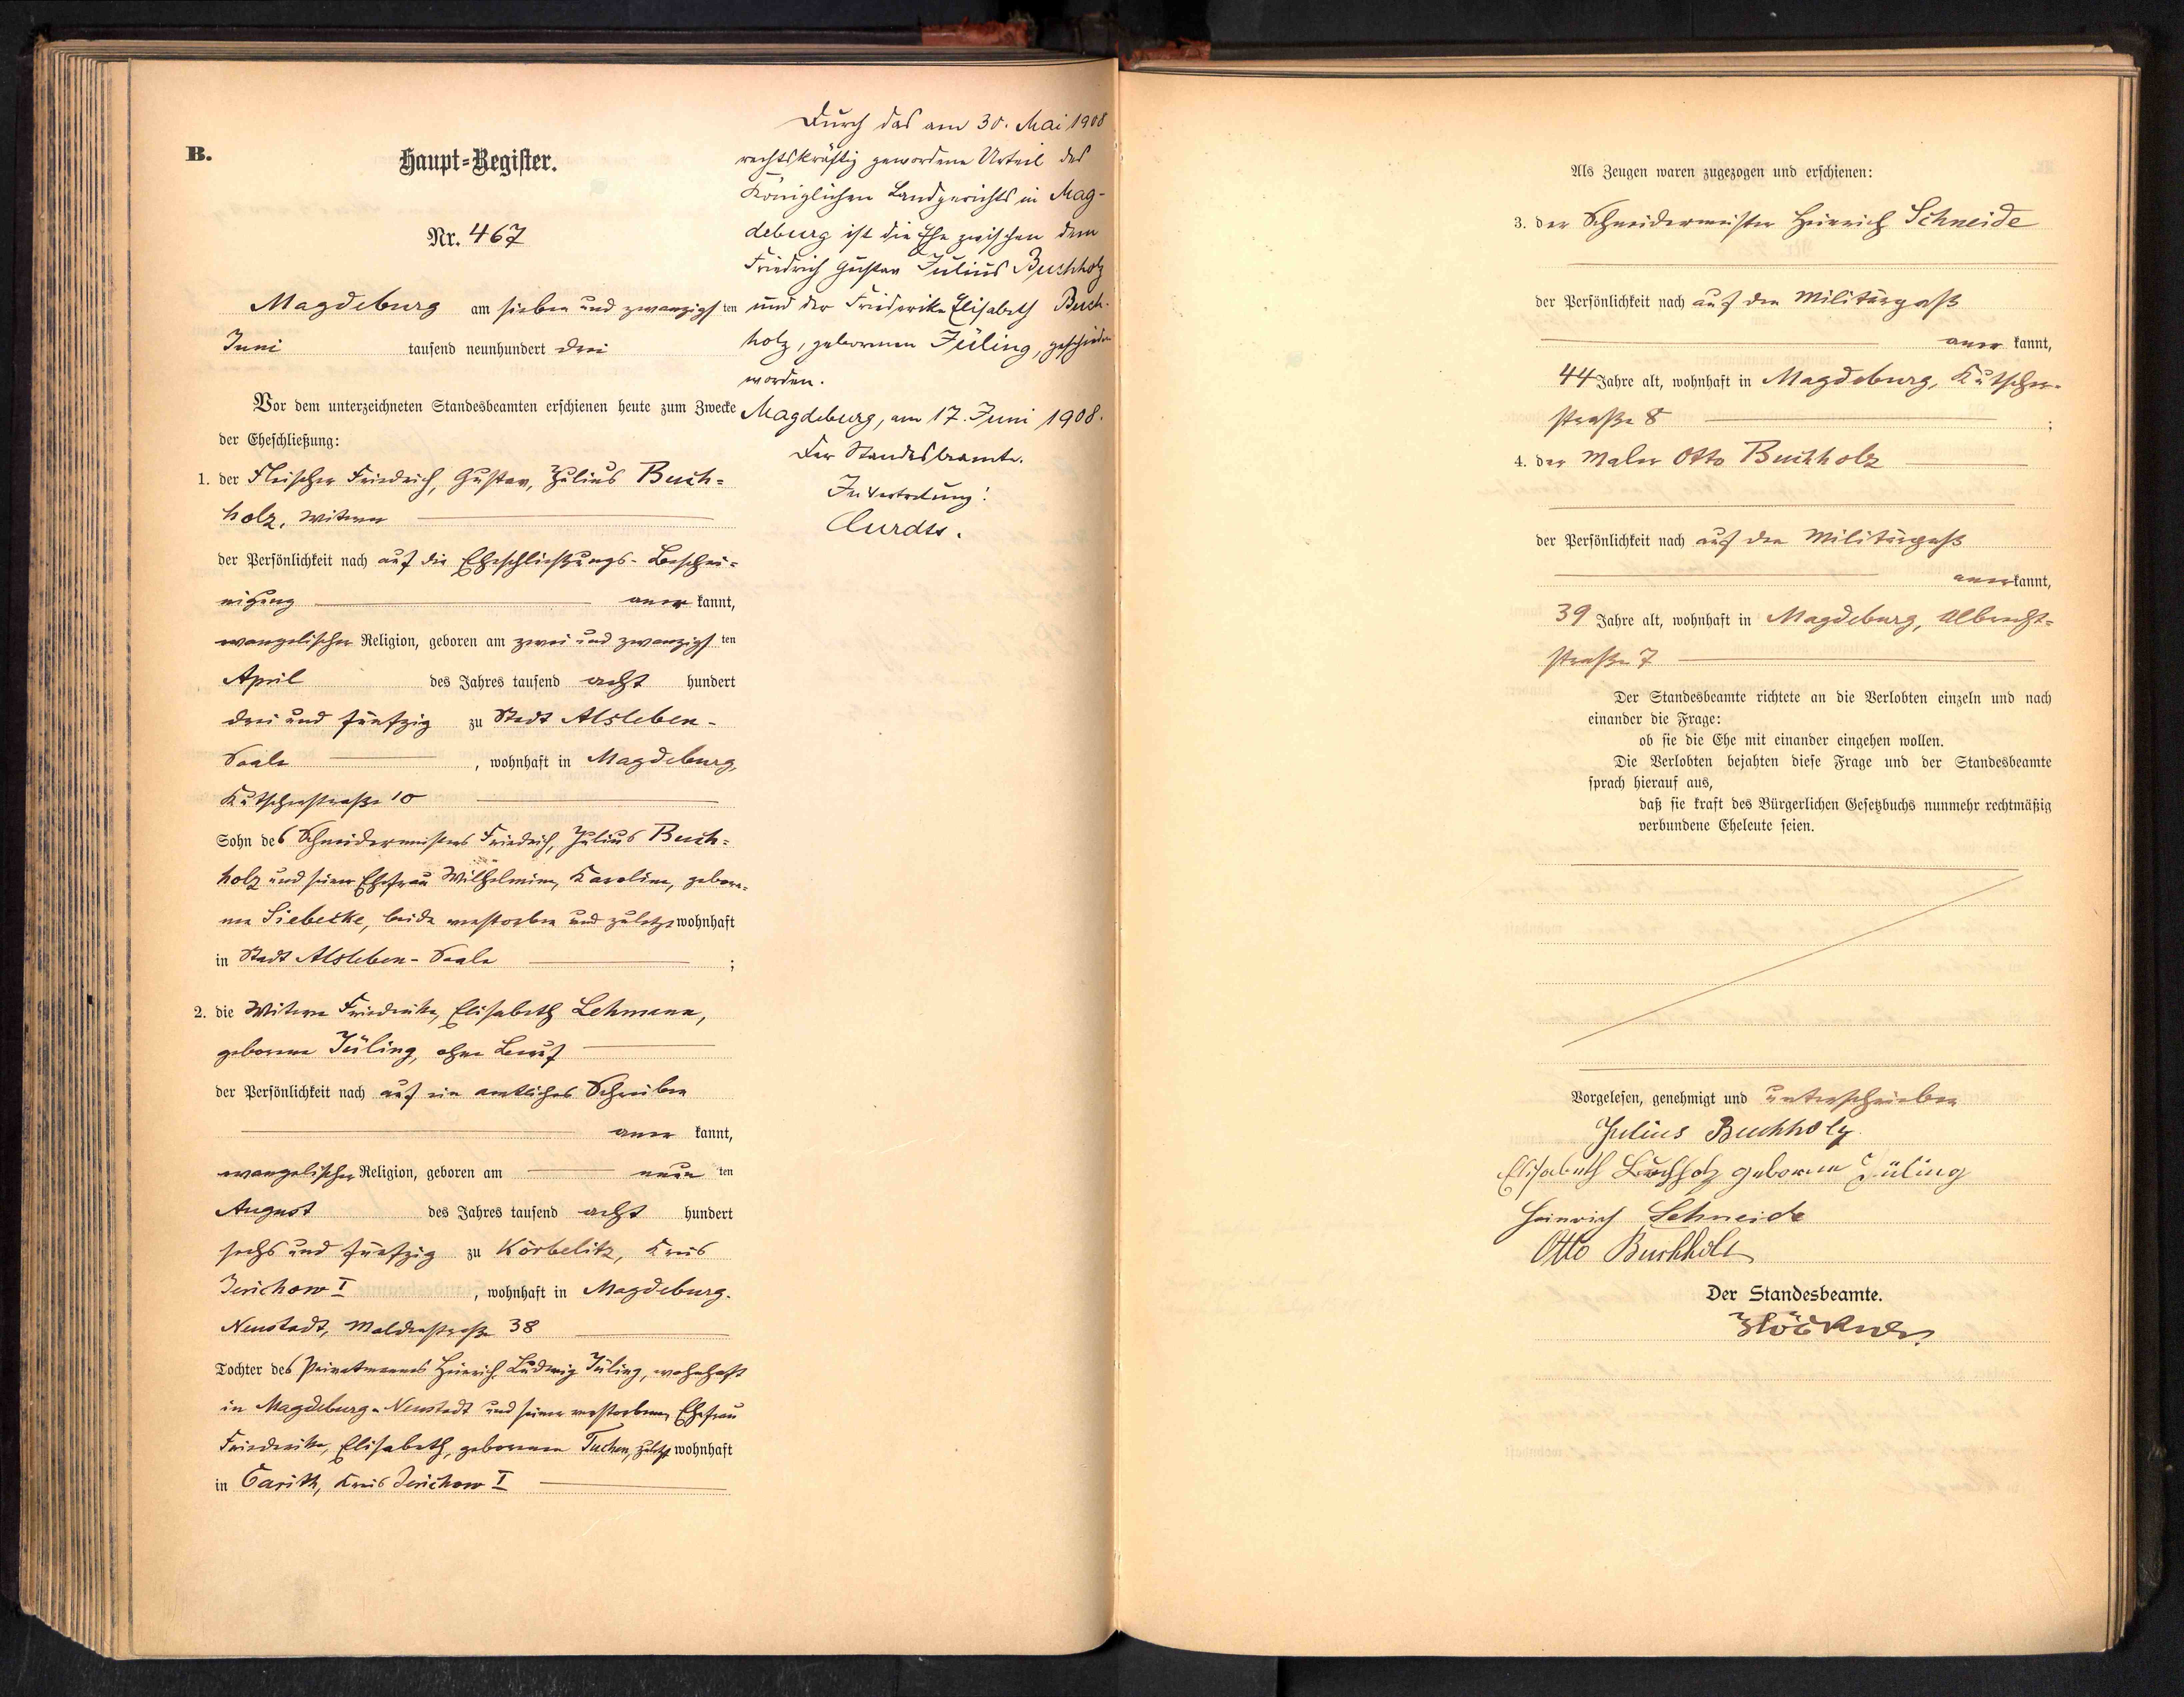 B.
Haupt-Register.
Nr. 467
Magdeburg am sieben und zwanzigsten
Juni tausend neunhundert drei
Vor dem unterzeichneten Standesbeamten erschienen heute zum Zwecke
der Eheschließung:
1. der Fleischer Friedrich, Gustav, Julius Buch=
holz, Witwer
der Persönlichkeit nach auf die Eheschließungs-Beschei=
nigung anerkannt,
evangelischer Religion, geboren am zwei und zwanzigsten
April des Jahres tausend acht hundert
drei und fünfzig zu Stadt Alsleben-
Saale, wohnhaft in Magdeburg,
Kutscherstraße 10
Sohn des Schneidermeisters Friedrich, Julius Buch=
holz und seiner Ehefrau Wilhelmine, Karoline, gebore=
nen Siebecke, beide verstorben und zuletzt wohnhaft
in Stadt Alsleben-Saale;
2. die Witwe Friederike, Elisabeth Lehmann,
geborene Jüling, ohne Beruf
der Persönlichkeit nach auf ein amtliches Schreiben
anerkannt,
evangelischer Religion, geboren am neunten
August des Jahres tausend acht hundert
sechs und fünfzig zu Körbelitz, Kreis
Jerichow I, wohnhaft in Magdeburg-
Neustadt, Moldenstraße 38
Tochter des Privatmannes Heinrich Ludwig Jüling, wohnhaft
in Magdeburg-Neustadt und seiner verstorbenen Ehefrau
Friederike, Elisabeth, geborenen Tuchen, zuletzt wohnhaft
in Kreis Jerichow I
Durch das am 30. Mai 1908
rechtskräftig gewordene Urteil des
Königlichen Landgerichts in Mag-
deburg ist die Ehe zwischen dem
Friedrich Gustav Julius Buchholz
und der Friederike Elisabeth Buch-
holz, geborenen Jüling, geschieden
worden.
Magdeburg, am 17. Juni 1908.
Der Standesbeamte.
In Vertretung:
Als Zeugen waren zugezogen und erschienen:
3. der Schneidermeister Heinrich Schneide
der Persönlichkeit nach auf den Militärpaß
anerkannt,
44 Jahre alt, wohnhaft in Magdeburg, Kutscher-
straße 8;
4. der Maler Otto Buchholz
der Persönlichkeit nach auf den Militärpaß
anerkannt,
39 Jahre alt, wohnhaft in Magdeburg, Albrecht=
straße 7
Der Standesbeamte richtete an die Verlobten einzeln und nach
einander die Frage:
ob sie die Ehe mit einander eingehen wollen.
Die Verlobten bejahten diese Frage und der Standesbeamte
sprach hierauf aus,
daß sie kraft des Bürgerlichen Gesetzbuchs nunmehr rechtmäßig
verbundene Eheleute seien.
Vorgelesen, genehmigt und unterschrieben
Julius Buchholz
Elisabeth Buchholz geborene Jüling
Heinrich Schneide
Otto Buchholz
Der Standesbeamte.